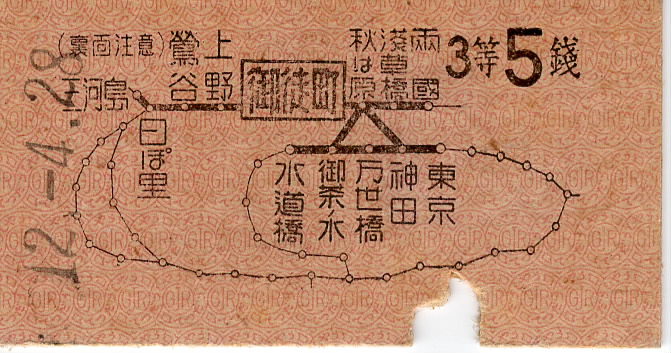 12.-4.28
（裏面注意）
三河島
日ぽ里
鶯谷
上野
御徒町
秋は原
浅草橋
両國
3等5錢
水道橋
御茶ノ水
万世橋
神田
東京